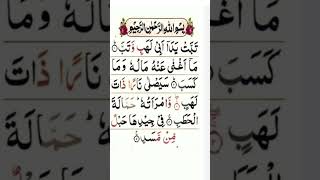 بِسْمِ اللّٰهِ الرَّحْمٰنِ الرَّحِيْمِ
تَبَّتْ يَدَاۤ اَبِىْ لَهَبٍ وَّتَبَّ ۝
مَاۤ اَغْنٰى عَنْهُ مَالُهٗ وَمَا
كَسَبَ ۝ سَيَصْلٰى نَارًا ذَاتَ
لَهَبٍ ۝ وَّامْرَاَتُهٗ ؕ حَمَّالَةَ
الْحَطَبِ ۝ فِىْ جِيْدِهَا حَبْلٌ
مِّنْ مَّسَدٍ ۝